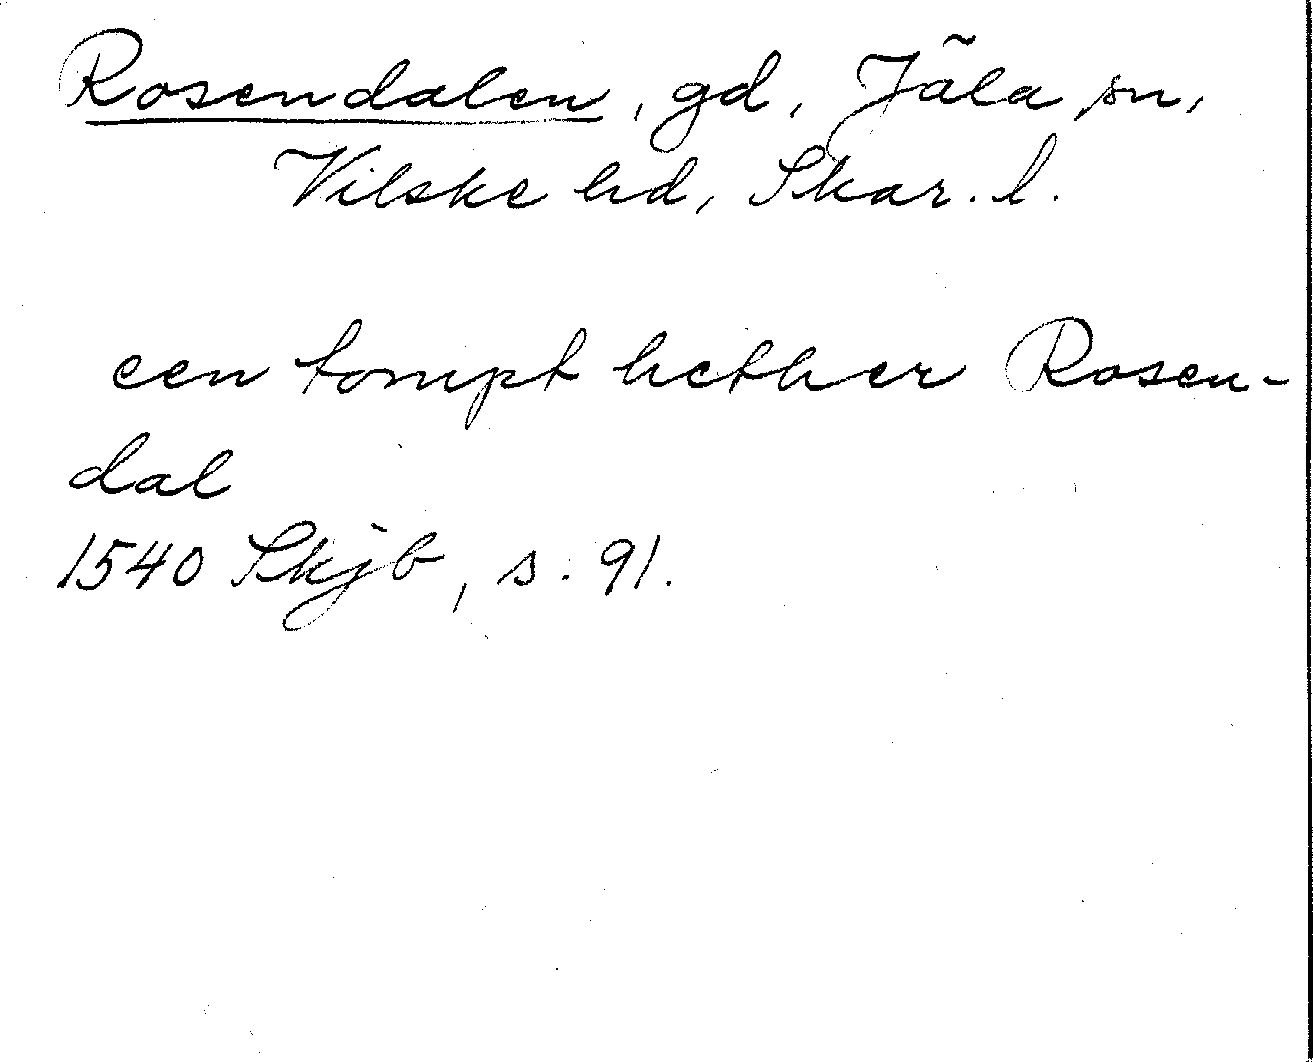 Rosendalen, gd, Jäla sn,
Vilske hd, Skar. l.
een tompt hether Rosen-
dal
1540 Skjb, s. 91.